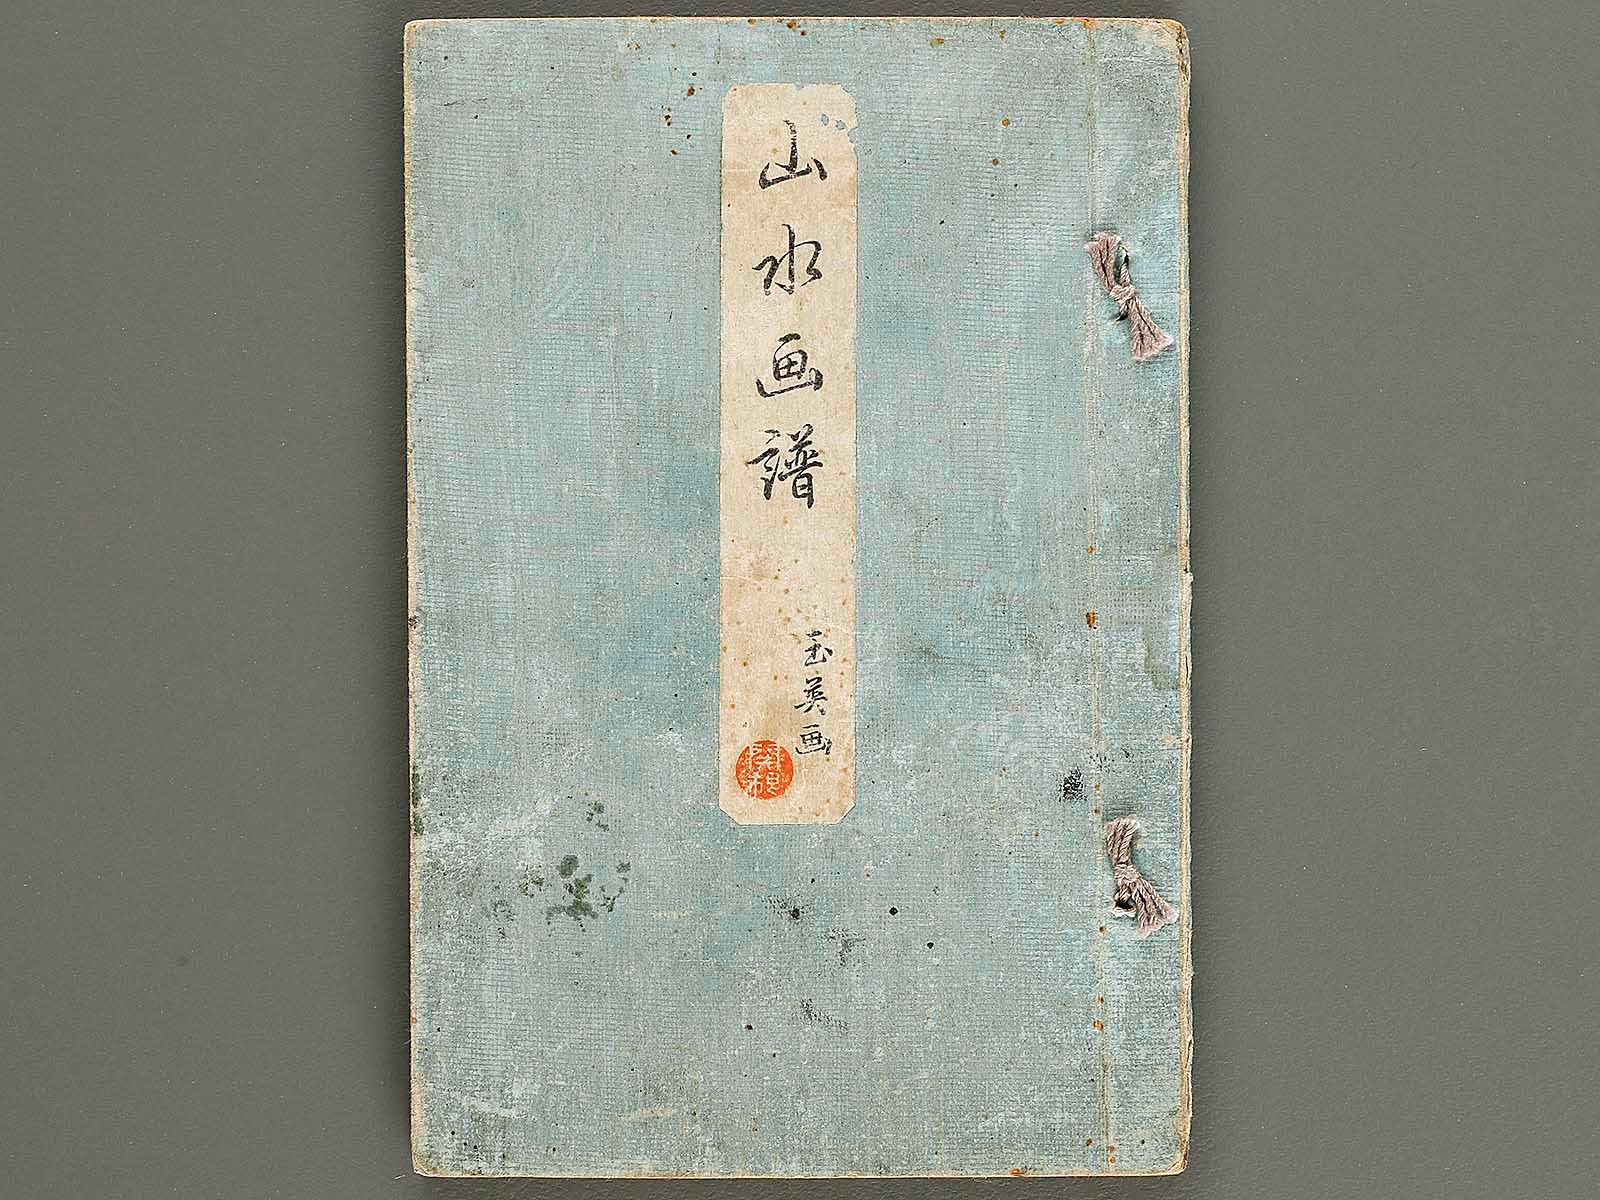 山水画譜
玉英画